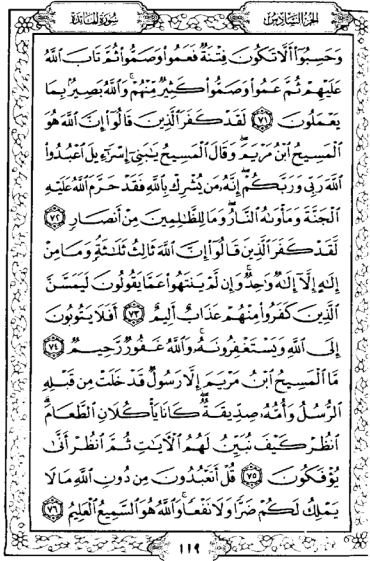 سُورَةُ المَائِدَة الجُزءُ السَّادِسُ
وَحَسِبُوٓا۟ أَلَّا تَكُونَ فِتْنَةٌ فَعَمُوا۟ وَصَمُّوا۟ ثُمَّ تَابَ ٱللَّهُ
عَلَيْهِمْ ثُمَّ عَمُوا۟ وَصَمُّوا۟ كَثِيرٌ مِّنْهُمْ ۚ وَٱللَّهُ بَصِيرٌۢ بِمَا
يَعْمَلُونَ ٧١ لَقَدْ كَفَرَ ٱلَّذِينَ قَالُوٓا۟ إِنَّ ٱللَّهَ هُوَ
ٱلْمَسِيحُ ٱبْنُ مَرْيَمَ ۖ وَقَالَ ٱلْمَسِيحُ يَـٰبَنِىٓ إِسْرَٰٓءِيلَ ٱعْبُدُوا۟
ٱللَّهَ رَبِّى وَرَبَّكُمْ ۖ إِنَّهُۥ مَن يُشْرِكْ بِٱللَّهِ فَقَدْ حَرَّمَ ٱللَّهُ عَلَيْهِ
ٱلْجَنَّةَ وَمَأْوَىٰهُ ٱلنَّارُ ۖ وَمَا لِلظَّـٰلِمِينَ مِنْ أَنصَارٍ ٧٢
لَّقَدْ كَفَرَ ٱلَّذِينَ قَالُوٓا۟ إِنَّ ٱللَّهَ ثَالِثُ ثَلَـٰثَةٍ ۘ وَمَا مِنْ
إِلَـٰهٍ إِلَّآ إِلَـٰهٌ وَٰحِدٌ ۚ وَإِن لَّمْ يَنتَهُوا۟ عَمَّا يَقُولُونَ لَيَمَسَّنَّ
ٱلَّذِينَ كَفَرُوا۟ مِنْهُمْ عَذَابٌ أَلِيمٌ ٧٣ أَفَلَا يَتُوبُونَ
إِلَى ٱللَّهِ وَيَسْتَغْفِرُونَهُۥ ۚ وَٱللَّهُ غَفُورٌ رَّحِيمٌ ٧٤
مَّا ٱلْمَسِيحُ ٱبْنُ مَرْيَمَ إِلَّا رَسُولٌ قَدْ خَلَتْ مِن قَبْلِهِ
ٱلرُّسُلُ وَأُمُّهُۥ صِدِّيقَةٌ ۖ كَانَا يَأْكُلَانِ ٱلطَّعَامَ ۗ
ٱنظُرْ كَيْفَ نُبَيِّنُ لَهُمُ ٱلْـَٔايَـٰتِ ثُمَّ ٱنظُرْ أَنَّىٰ
يُؤْفَكُونَ ٧٥ قُلْ أَتَعْبُدُونَ مِن دُونِ ٱللَّهِ مَا لَا
يَمْلِكُ لَكُمْ ضَرًّا وَلَا نَفْعًا ۚ وَٱللَّهُ هُوَ ٱلسَّمِيعُ ٱلْعَلِيمُ ٧٦
١١٩